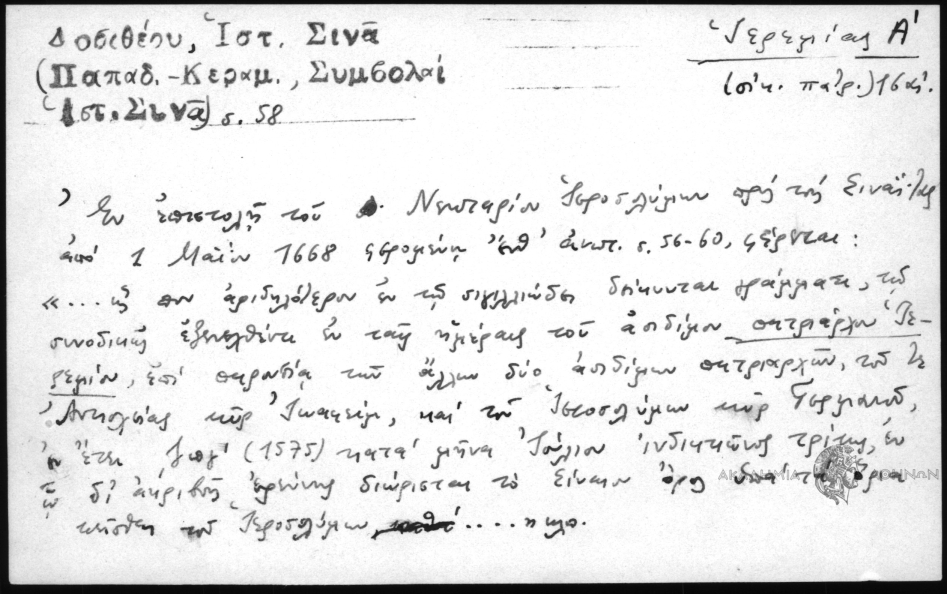 Δοσιθέου, Ἱστ. Σινᾶ
(Παπαδ.-Κεραμ., Συμβολαί
Ἱστ. Σινᾶ) σ. 58
Ἱερεμίας Α΄
(οἰκ. πατρ.) 16 αἰ.
Ἐν ἐπιστολῇ τοῦ Νεκταρίου Ἱεροσολύμων πρός τούς Σιναΐτας
ἀπό 1 Μαΐου 1668 φερομένῃ ἐνθ' ἀνωτ. σ. 56-60, φέρεται:
«.... ὥς που ἀριδηλότερον ἐν τῷ σιγιλλιώδει δείκνυται γράμματι, τῷ
συνοδικῶς ἐξενεχθέντι ἐν ταῖς ἡμέραις τοῦ ἀοιδίμου πατριάρχου Ἱε-
ρεμίου, ἐπί παρουσίᾳ τῶν ἄλλων δύο ἀοιδίμων πατριαρχῶν, τοῦ τε
Ἀντιοχείας κύρ Ἰωακείμ, καί τοῦ Ἱεροσολύμων κύρ Γερμανοῦ,
ἐν ἔτει ͵ζπγ΄ (1575) κατά μῆνα Ἰούλιον ἰνδικτιῶνος τρίτης, ἐν
ᾧ δι' ἀκριβοῦς ἐρεύνης διώρισται τό Σίναιον ὄρος ὑπό τά ὅρια
τοῦ Ἱεροσολύμων .... κλπ.
ΑΚΑΔΗΜΙΑ ΑΘΗΝΩΝ